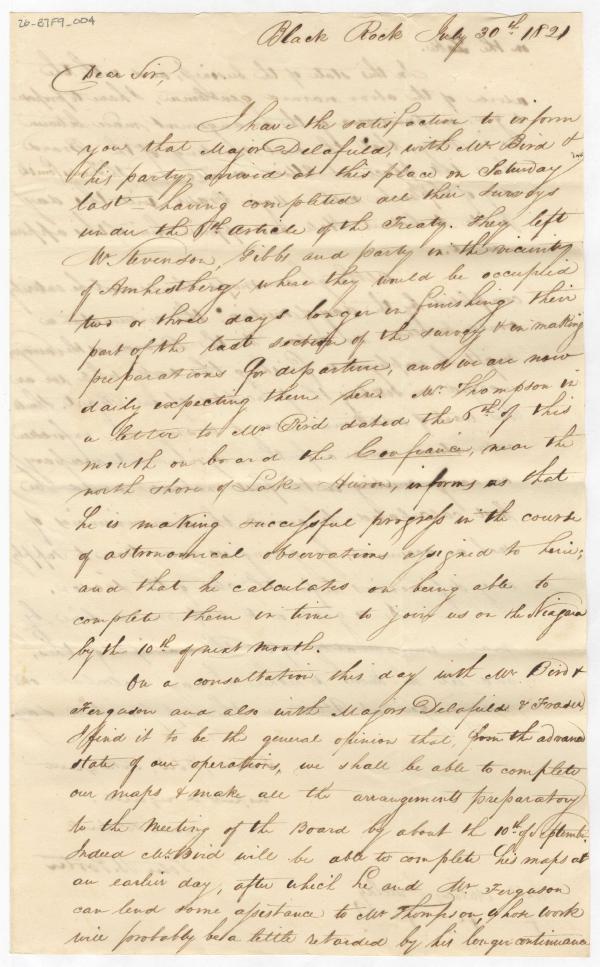 26-B7F9_004
Black Rock July 30th. 1821
Dear Sir,
I have the satisfaction to inform
you that Major Delafield, with Mr Bird &
his party, arrived at this place on Saturday
last - having completed all their surveys
under the 6th article of the Treaty. They left
Mr. Stevenson, Gibbs and party in the vicinity
of Amhestberg, where they would be occupied
two or three days longer in finishing their
part of the last section of the survey & in making
preparations for departure, and we are now
daily expecting them here. Mr. Thompson in
a letter to Mr Bird dated the 6th. of this
month on board the Confiance, near the
north shore of Lake Huron, informs us that
he is making successful progress in the course
of astronomical observations assigned to him;
and that he calculates on being able to
complete them in time to join us on the Niagara
by the 10th. of next month.
On a consultation this day with Mr Bird &
Ferguson and also with Majors Delafield & Fraser
I find it to be the general opinion that, from the advanced
state of our operations, we shall be able to complete
our maps & make all the arrangements preparatory
to the Meeting of the Board by about the 10th. of September.
Indeed Mr. Bird will be able to complete his maps at
an earlier day, after which he and Mr. Ferguson
can lend some assistance to Mr Thompson, whose work
will probably be a little retarded by his longer continuance